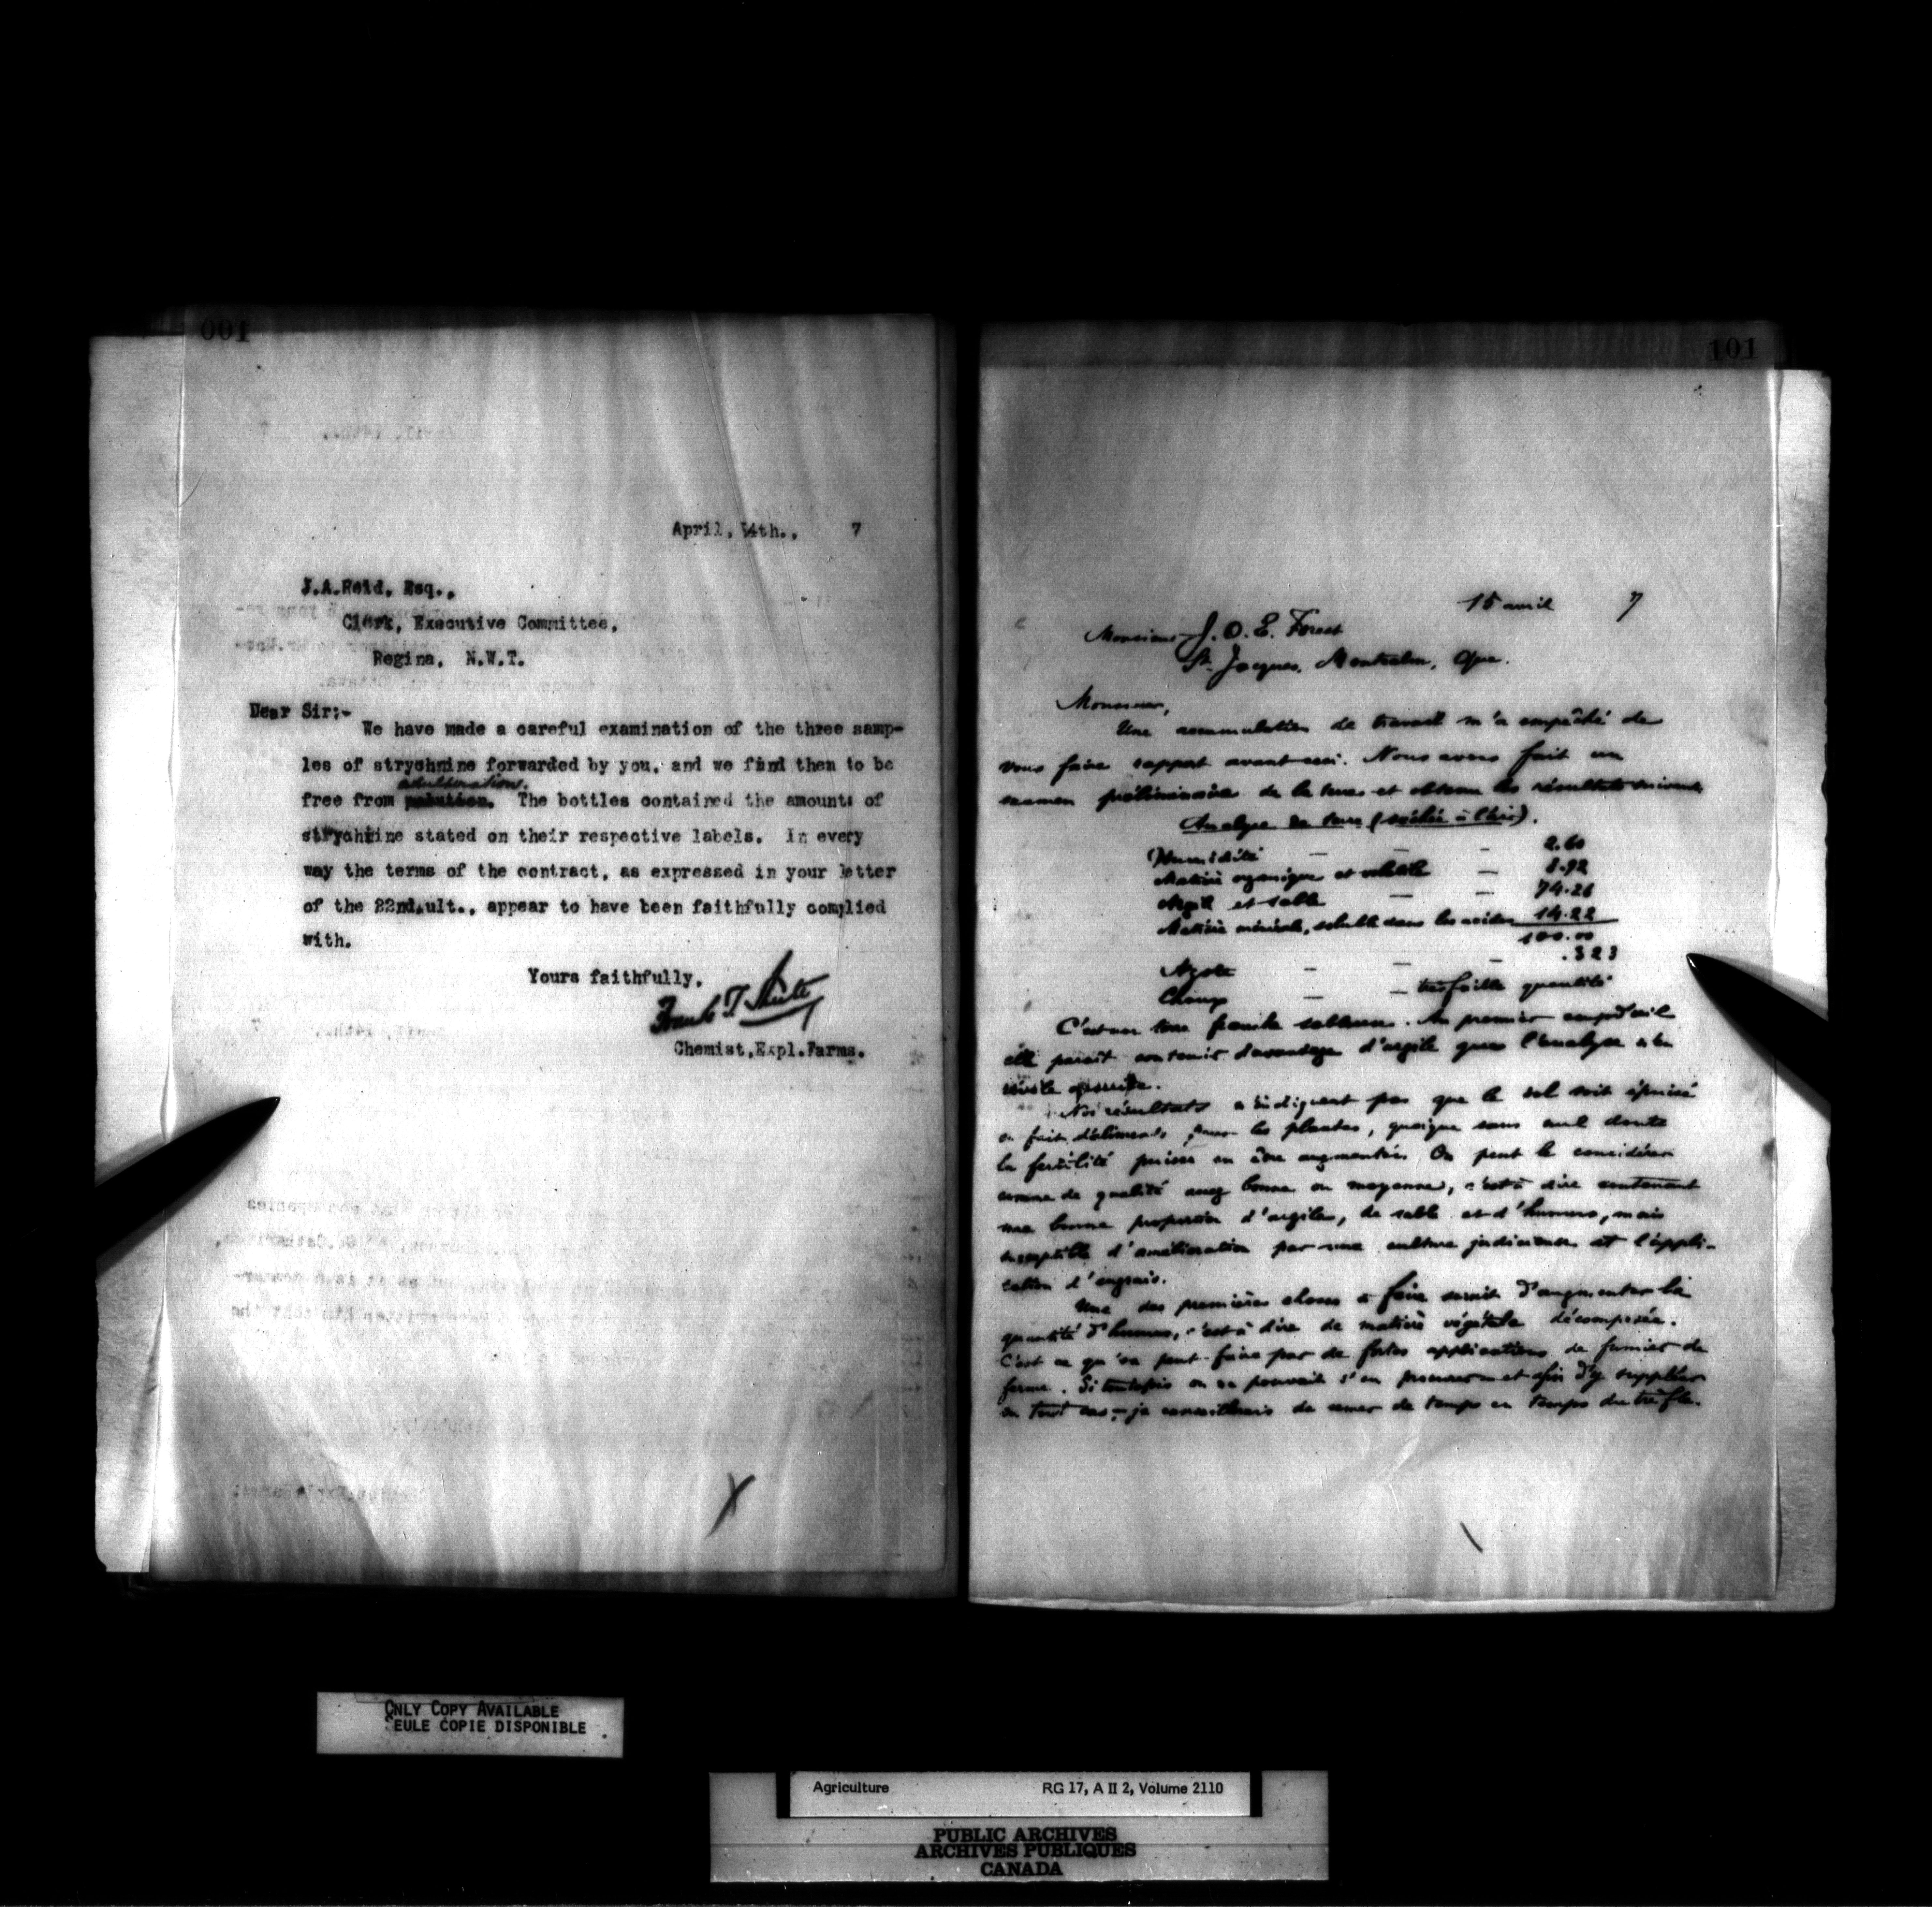 001
April, 14th., 7
J.A.Reid, Esq.,
Clerk, Executive Committee,
Regina, N.W.T.
Dear Sir:-
We have made a careful examination of the three samp-
les of strychnine forwarded by you, and we find then to be
adulteration.
free from The bottles contained the amounts of
strychnine stated on their respective labels. In every
way the terms of the contract, as expressed in your letter
of the 22nd.ult., appear to have been faithfully complied
with.
Yours faithfully,
Frank T. Shutt
Chemist,Expl.Farms.
X
101
15 avril 7
Monsieur J. O. E. Forest
St. Jacques, Montcalm, Que.
Monsieur,
Une accumulation de travail m'a empêché de
vous faire rapport avant ceci. Nous avons fait un
examen préliminaire de la terre et obtenu les résultats suivants
Analyse de terre (séchée à l'air).
Humidité — — - 2.60
Matière organique et volatile — 8.92
Argile et sable — — 74.26
Matière minérale, soluble dans les acides 14.22
100.00
Azote - — - .323
Chaux — — très faible quantité
C'est une terre franche sableuse. Au premier coup d'œil
elle paraît contenir davantage d'argile que l'analyse
Nos résultats n'indiquent pas que le sol soit épuisé
en fait d'aliments pour les plantes, quoique sans nul doute
la fertilité puisse en être augmentée. On peut le considérer
comme de qualité assez bonne ou moyenne, c'est à dire contenant
une bonne proportion d'argile, de sable et d'humus, mais
susceptible d'amélioration par une culture judicieuse et l'appli-
cation d'engrais.
Une des premières choses à faire serait d'augmenter la
quantité d'humus, c'est à dire de matière végétale décomposée.
C'est ce qu'on peut faire par de fortes applications de fumier de
ferme. Si toutefois on ne pouvait s'en procurer et afin d'y suppléer
en tout cas, je conseillerais de semer de temps en temps du trèfle.
ONLY COPY AVAILABLE
SEULE COPIE DISPONIBLE
Agriculture RG 17, A II 2, Volume 2110
PUBLIC ARCHIVES
ARCHIVES PUBLIQUES
CANADA